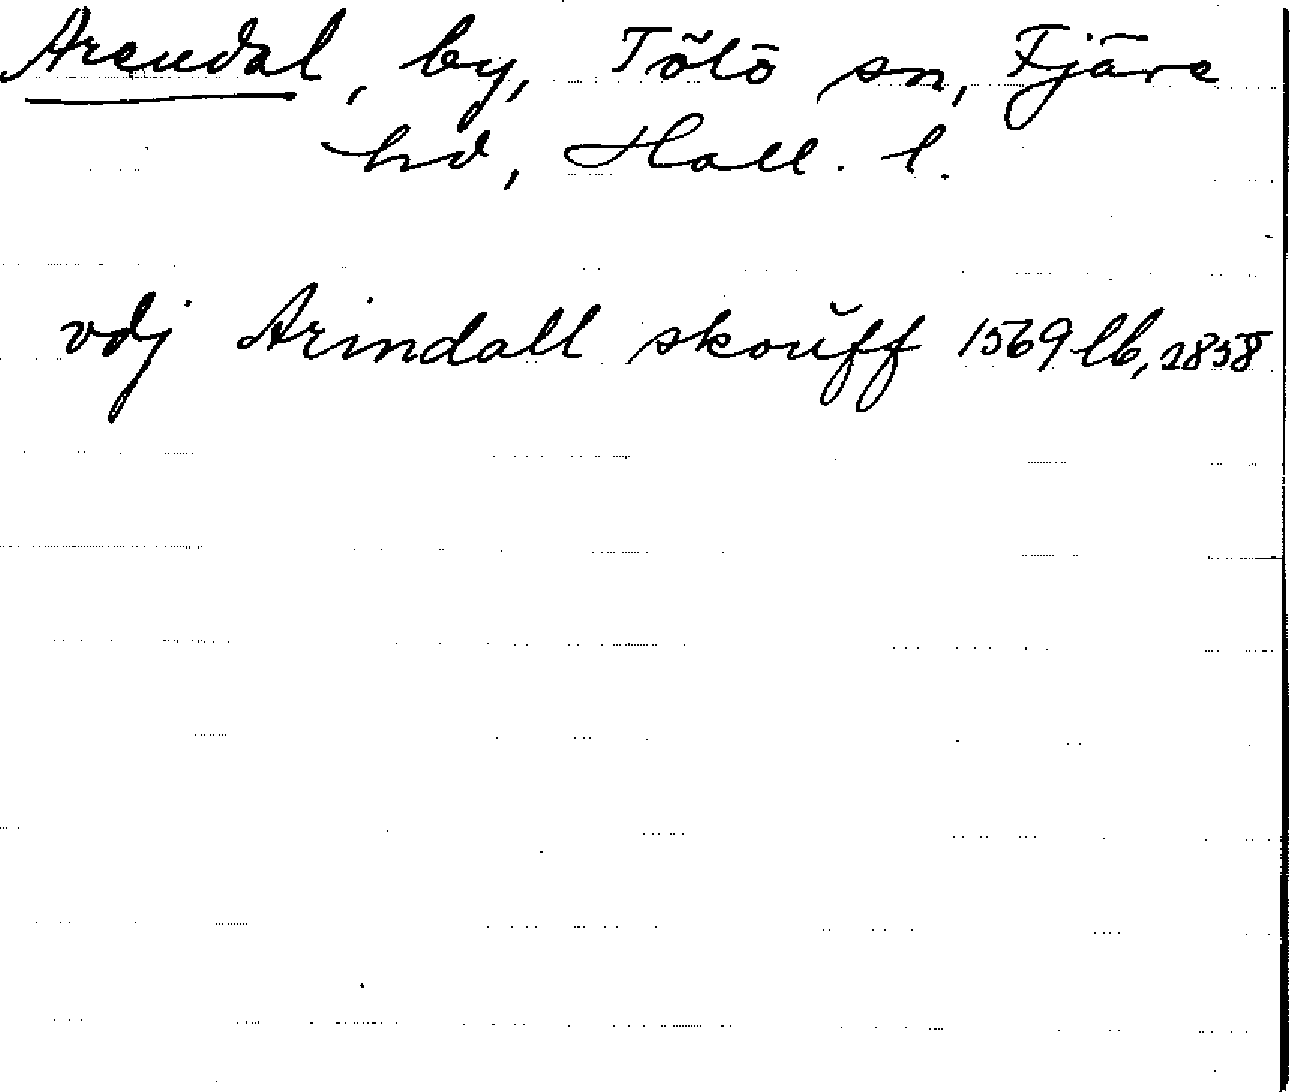 Arendal, by, Tölö sn, Fjäre
hd, Hall. l.
vdj Arindall skoŭff 1569 lb, 1838